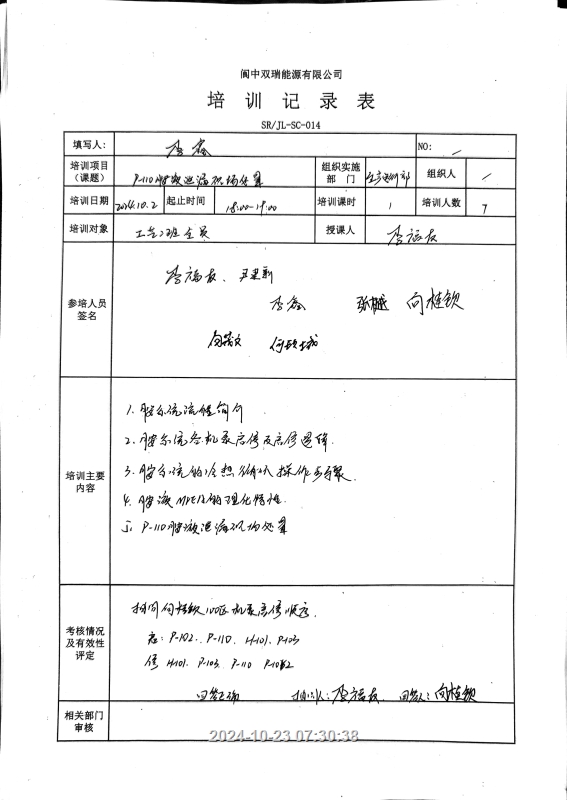 阆中双瑞能源有限公司
培训记录表
SR/JL-SC-014
填写人： 李鑫 NO: /
培训项目（课题） P-110胺液泄漏现场处置 组织实施部门 生产部 组织人 /
培训日期 2024.10.2 起止时间 18:00-19:00 培训课时 1 培训人数 7
培训对象 工艺班全员 授课人 李福友
参培人员签名
李福友、
李鑫 向桂钦
培训主要内容
1. 胺系统流程简介
2. 胺系统各机泵启停及启停逻辑
3. 胺系统的冷热循环操作步骤。
4. 胺液MDEA的理化特性.
5. P-110胺液泄漏现场处置
考核情况及有效性评定
抽问向桂钦100区机泵启停顺序.
启: P-102. P-110. H101. P-103
停 H101. P-103. P-110 P-102
回答正确 李福友 回答人: 向桂钦
相关部门审核
2024-10-23 07:30:38